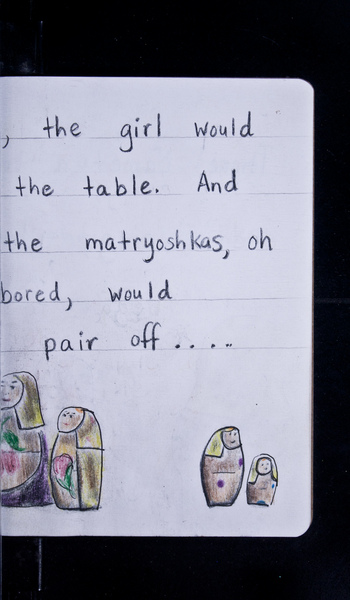 , the girl would
the table. And
the matryoshkas, oh
bored, would
pair off . . . . .